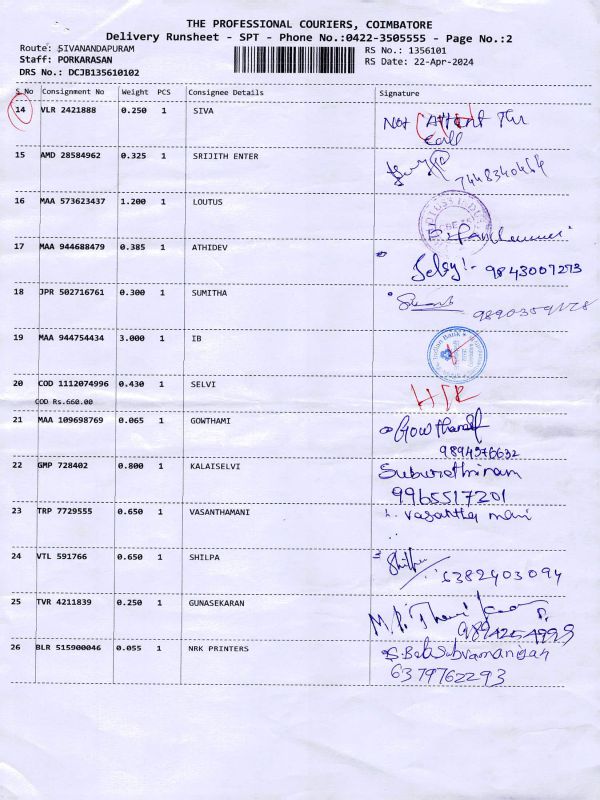 THE PROFESSIONAL COURIERS, COIMBATORE
Delivery Runsheet - SPT - Phone No.:0422-3505555 - Page No.:2
Route: SIVANANDAPURAM
Staff: PORKARASAN
DRS No.: DCJB135610102
RS No.: 1356101
RS Date: 22-Apr-2024
S.No Consignment No Weight PCS Consignee Details Signature
14 VLR 2421888 0.250 1 SIVA Not Attent The
Call
15 AMD 28584962 0.325 1 SRIJITH ENTER 7448340464
16 MAA 573623437 1.200 1 LOUTUS
17 MAA 944688479 0.385 1 ATHIDEV Selsy!- 9843007273
18 JPR 502716761 0.300 1 SUMITHA
19 MAA 944754434 3.000 1 IB
Indian Bank
20 COD 1112074996 0.430 1 SELVI
COD Rs.660.00
21 MAA 109698769 0.065 1 GOWTHAMI
9894576632
22 GMP 728402 0.800 1 KALAISELVI Suburethinam
9965517201
23 TRP 7729555 0.650 1 VASANTHAMANI vasantha mani
24 VTL 591766 0.650 1 SHILPA Shilpa
6382403094
25 TVR 4211839 0.250 1 GUNASEKARAN
26 BLR 515900046 0.055 1 NRK PRINTERS S.Balasubramanian
6379762293